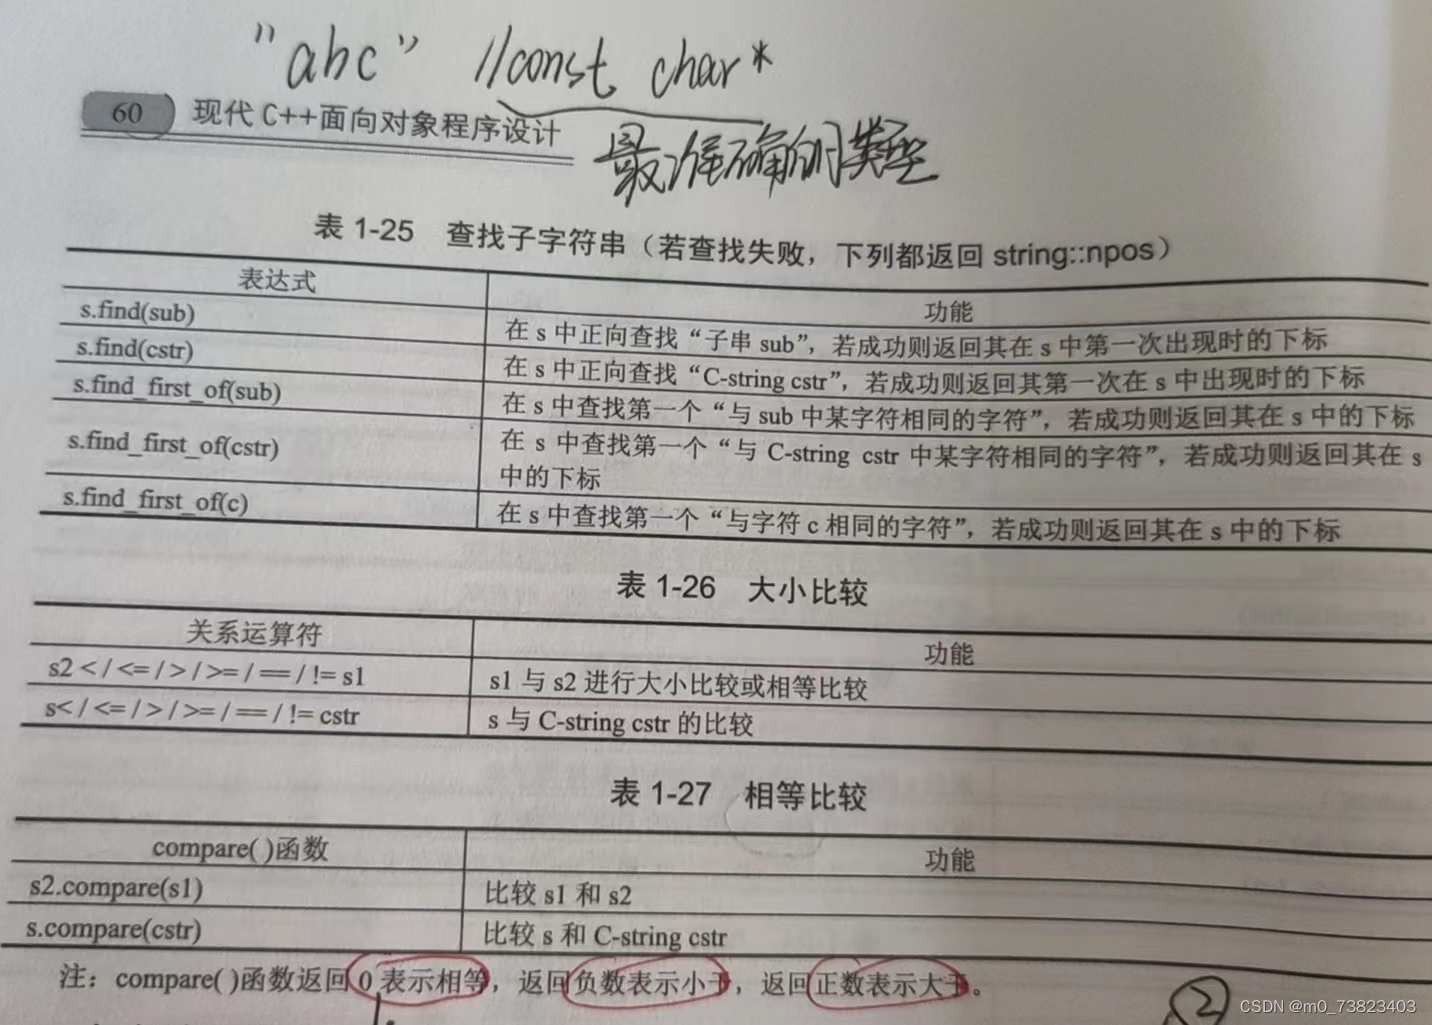 "abc" //const char*
60 现代 C++面向对象程序设计
最准确的类型
表 1-25 查找子字符串（若查找失败，下列都返回 string::npos）
表达式 功能
s.find(sub) 在 s 中正向查找“子串 sub”，若成功则返回其在 s 中第一次出现时的下标
s.find(cstr) 在 s 中正向查找“C-string cstr”，若成功则返回其第一次在 s 中出现时的下标
s.find_first_of(sub) 在 s 中查找第一个“与 sub 中某字符相同的字符”，若成功则返回其在 s 中的下标
s.find_first_of(cstr) 在 s 中查找第一个“与 C-string cstr 中某字符相同的字符”，若成功则返回其在 s
中的下标
s.find_first_of(c) 在 s 中查找第一个“与字符 c 相同的字符”，若成功则返回其在 s 中的下标
表 1-26 大小比较
关系运算符 功能
s2 < / <= / > / >= / == / != s1 s1 与 s2 进行大小比较或相等比较
s< / <= / > / >= / == / != cstr s 与 C-string cstr 的比较
表 1-27 相等比较
compare( )函数 功能
s2.compare(s1) 比较 s1 和 s2
s.compare(cstr) 比较 s 和 C-string cstr
注：compare( )函数返回 0 表示相等，返回负数表示小于，返回正数表示大于。
2
CSDN @m0_73823403